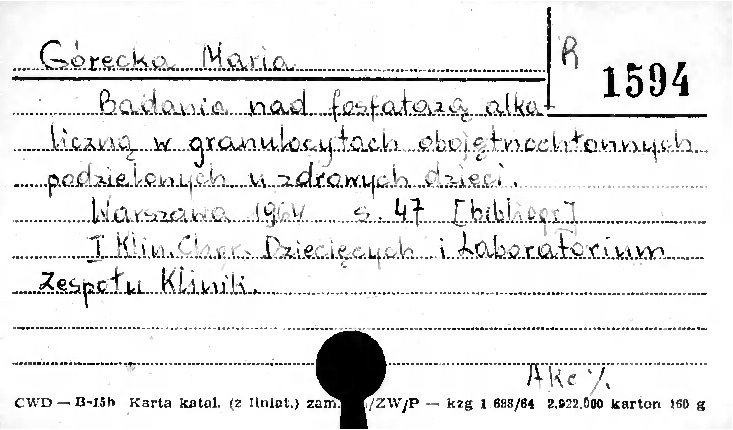 Górecka Maria
R 1594
Badania nad fosfatazą alka-
liczną w granulocytach obojętnochłonnych
podzielonych u zdrowych dzieci.
Warszawa 1964 s. 47 [bibliogr]
I Klin. Chor. Dziecięcych i Laboratorium
Zespołu Klinik.
Akc %
CWD — B-15b Karta katal. (z liniat.) zam. /ZW/P — kzg 1 688/64 2.922.000 karton 160 g